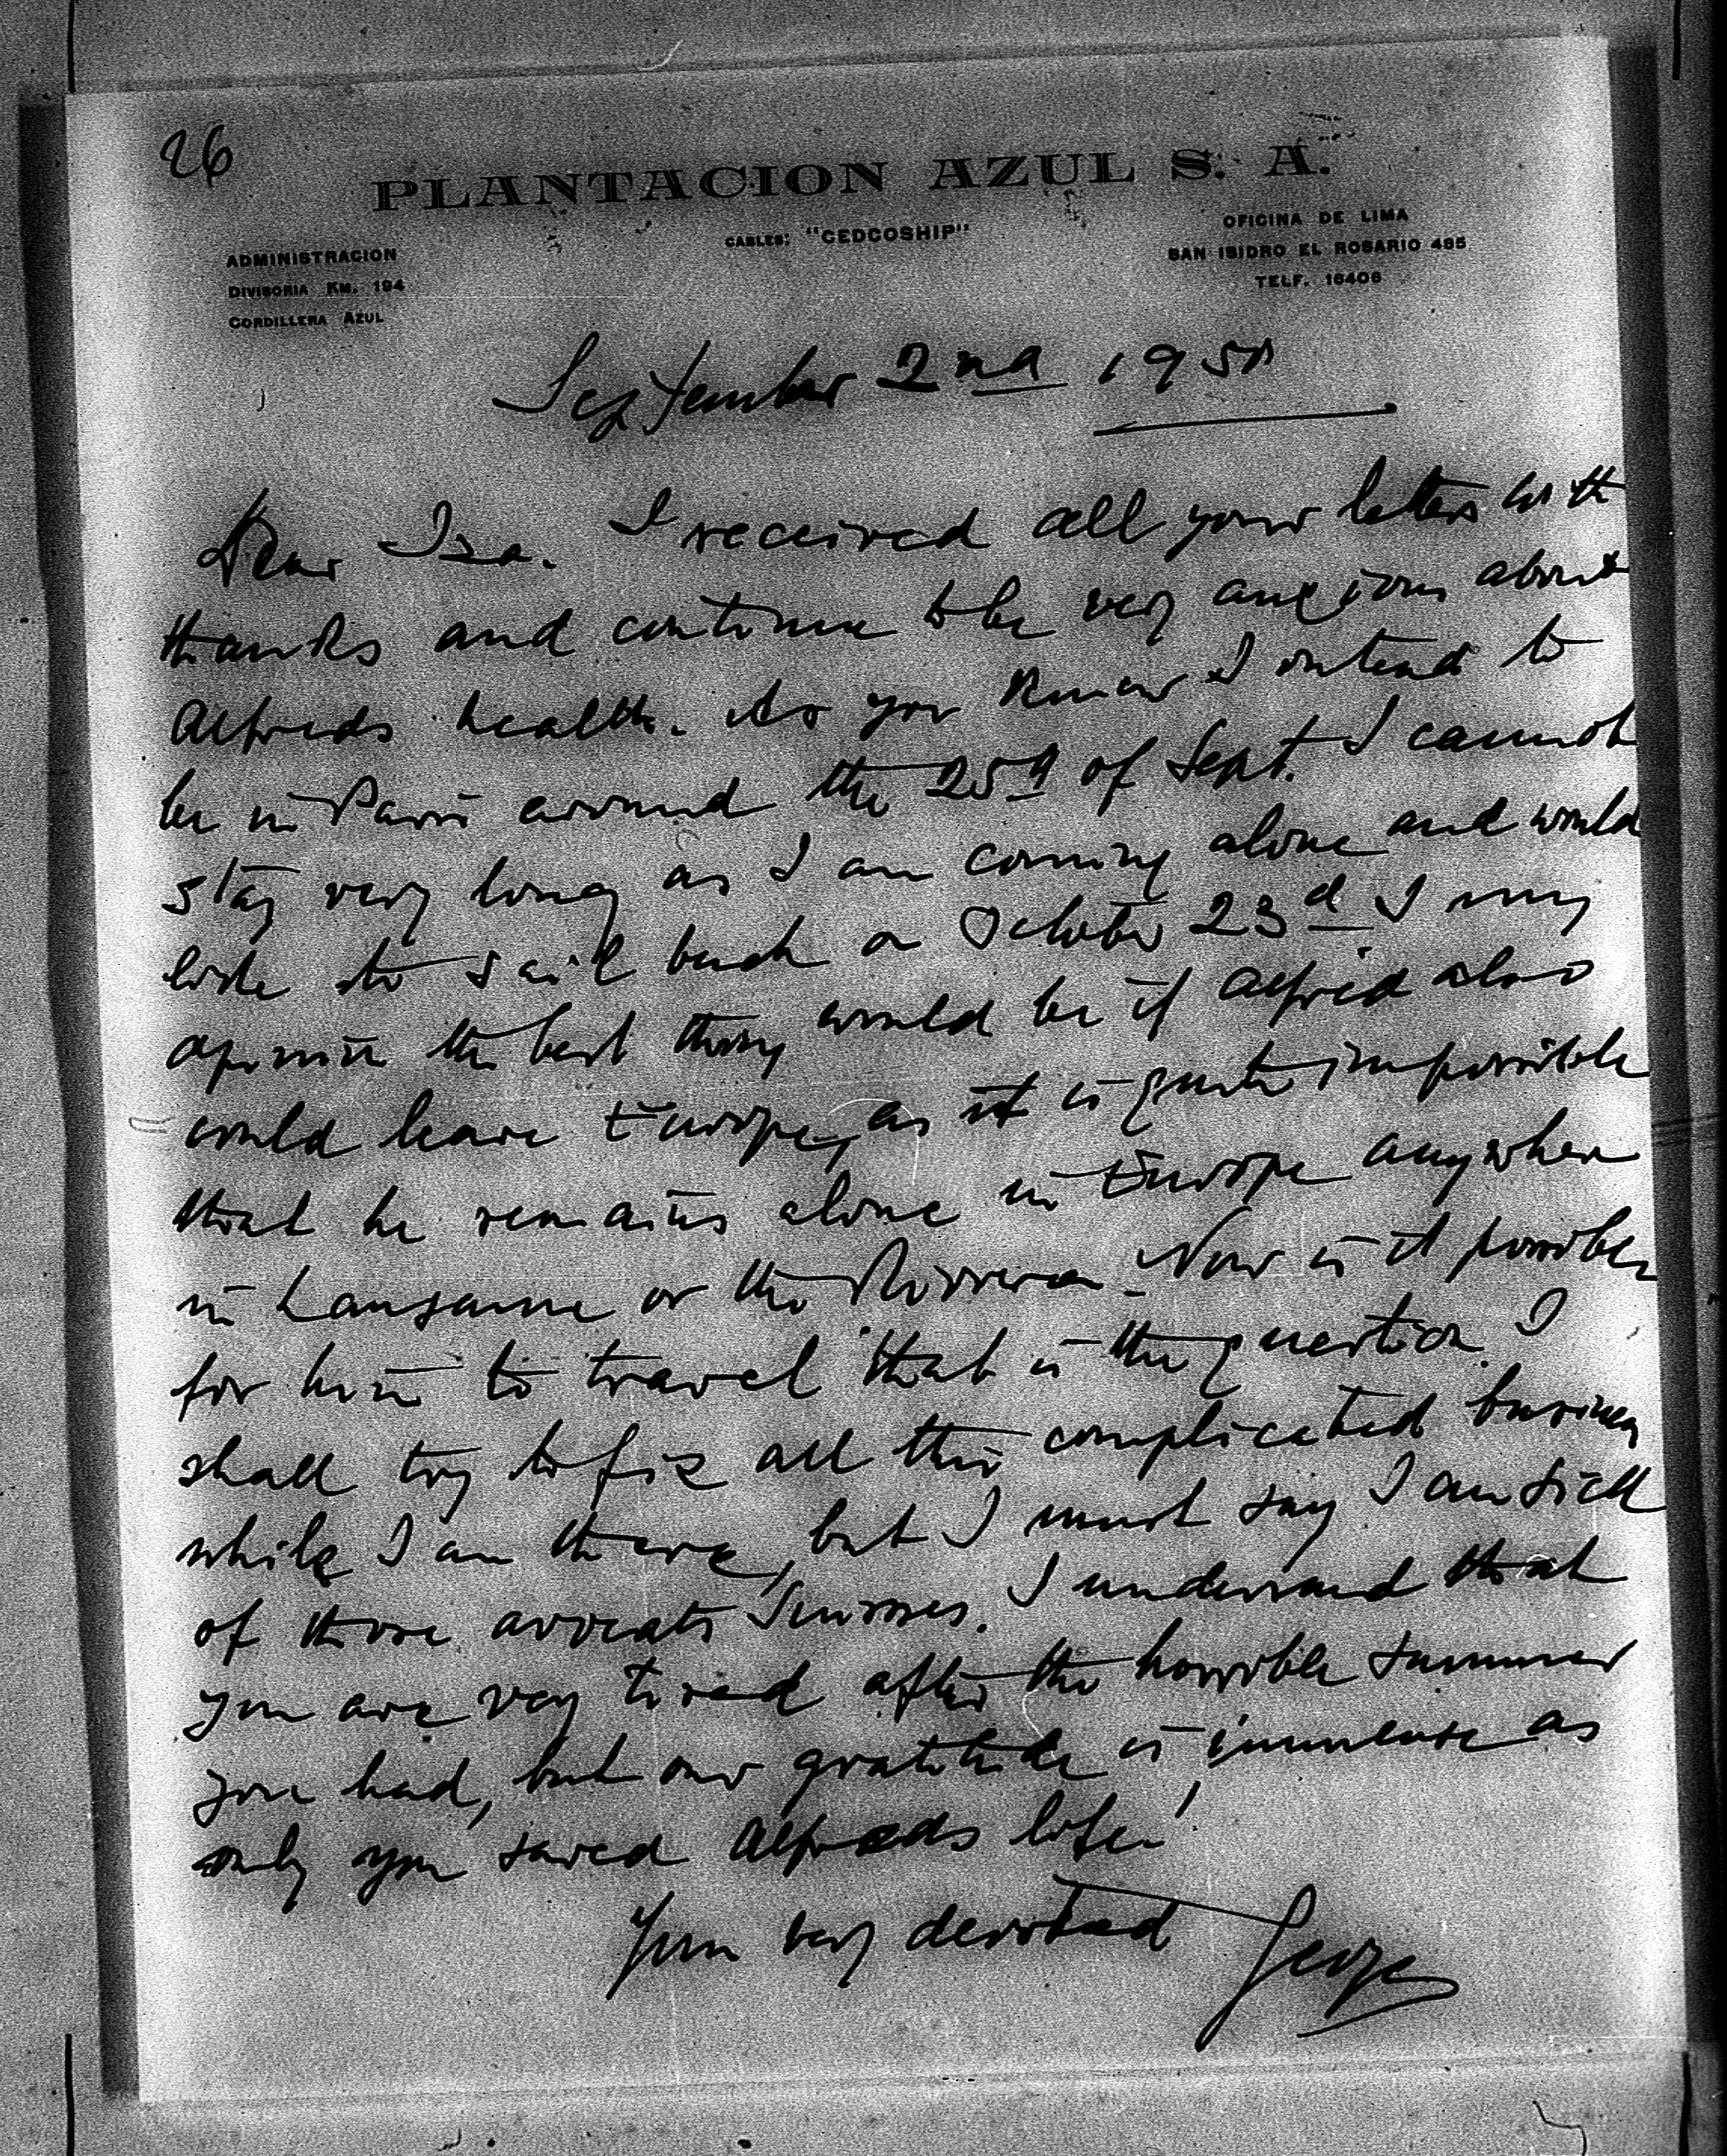 26
PLANTACION AZUL S. A.
CABLES: "CEDCOSHIP"
ADMINISTRACION
DIVISORIA KM. 194
CORDILLERA AZUL
OFICINA DE LIMA
SAN ISIDRO EL ROSARIO 485
TELF. 16406
September 2nd 195
Dear Isa. I received all your letters with
thanks and continue to be very anxious about
Alfreds health. As you know I intend to
be in Paris around the 25d of Sept. I cannot
stay very long as I am coming alone and would
like to sail back on October 23d I my
opinion the best thing would be if Alfred also
could leave Europe, as it is quite impossible
that he remains alone in Europe anywhere
in Lausanne or the Rivirera. Now is it possible
for him to travel that is the question. I
shall try to fix all this complicated business
while I am there, but I must say I am sick
of those avocats Suisses. I undersand that
you are very tired after the horrible summer
you had, but our gratitude is immense as
only you saved Alfreds life!
Your very devoted George